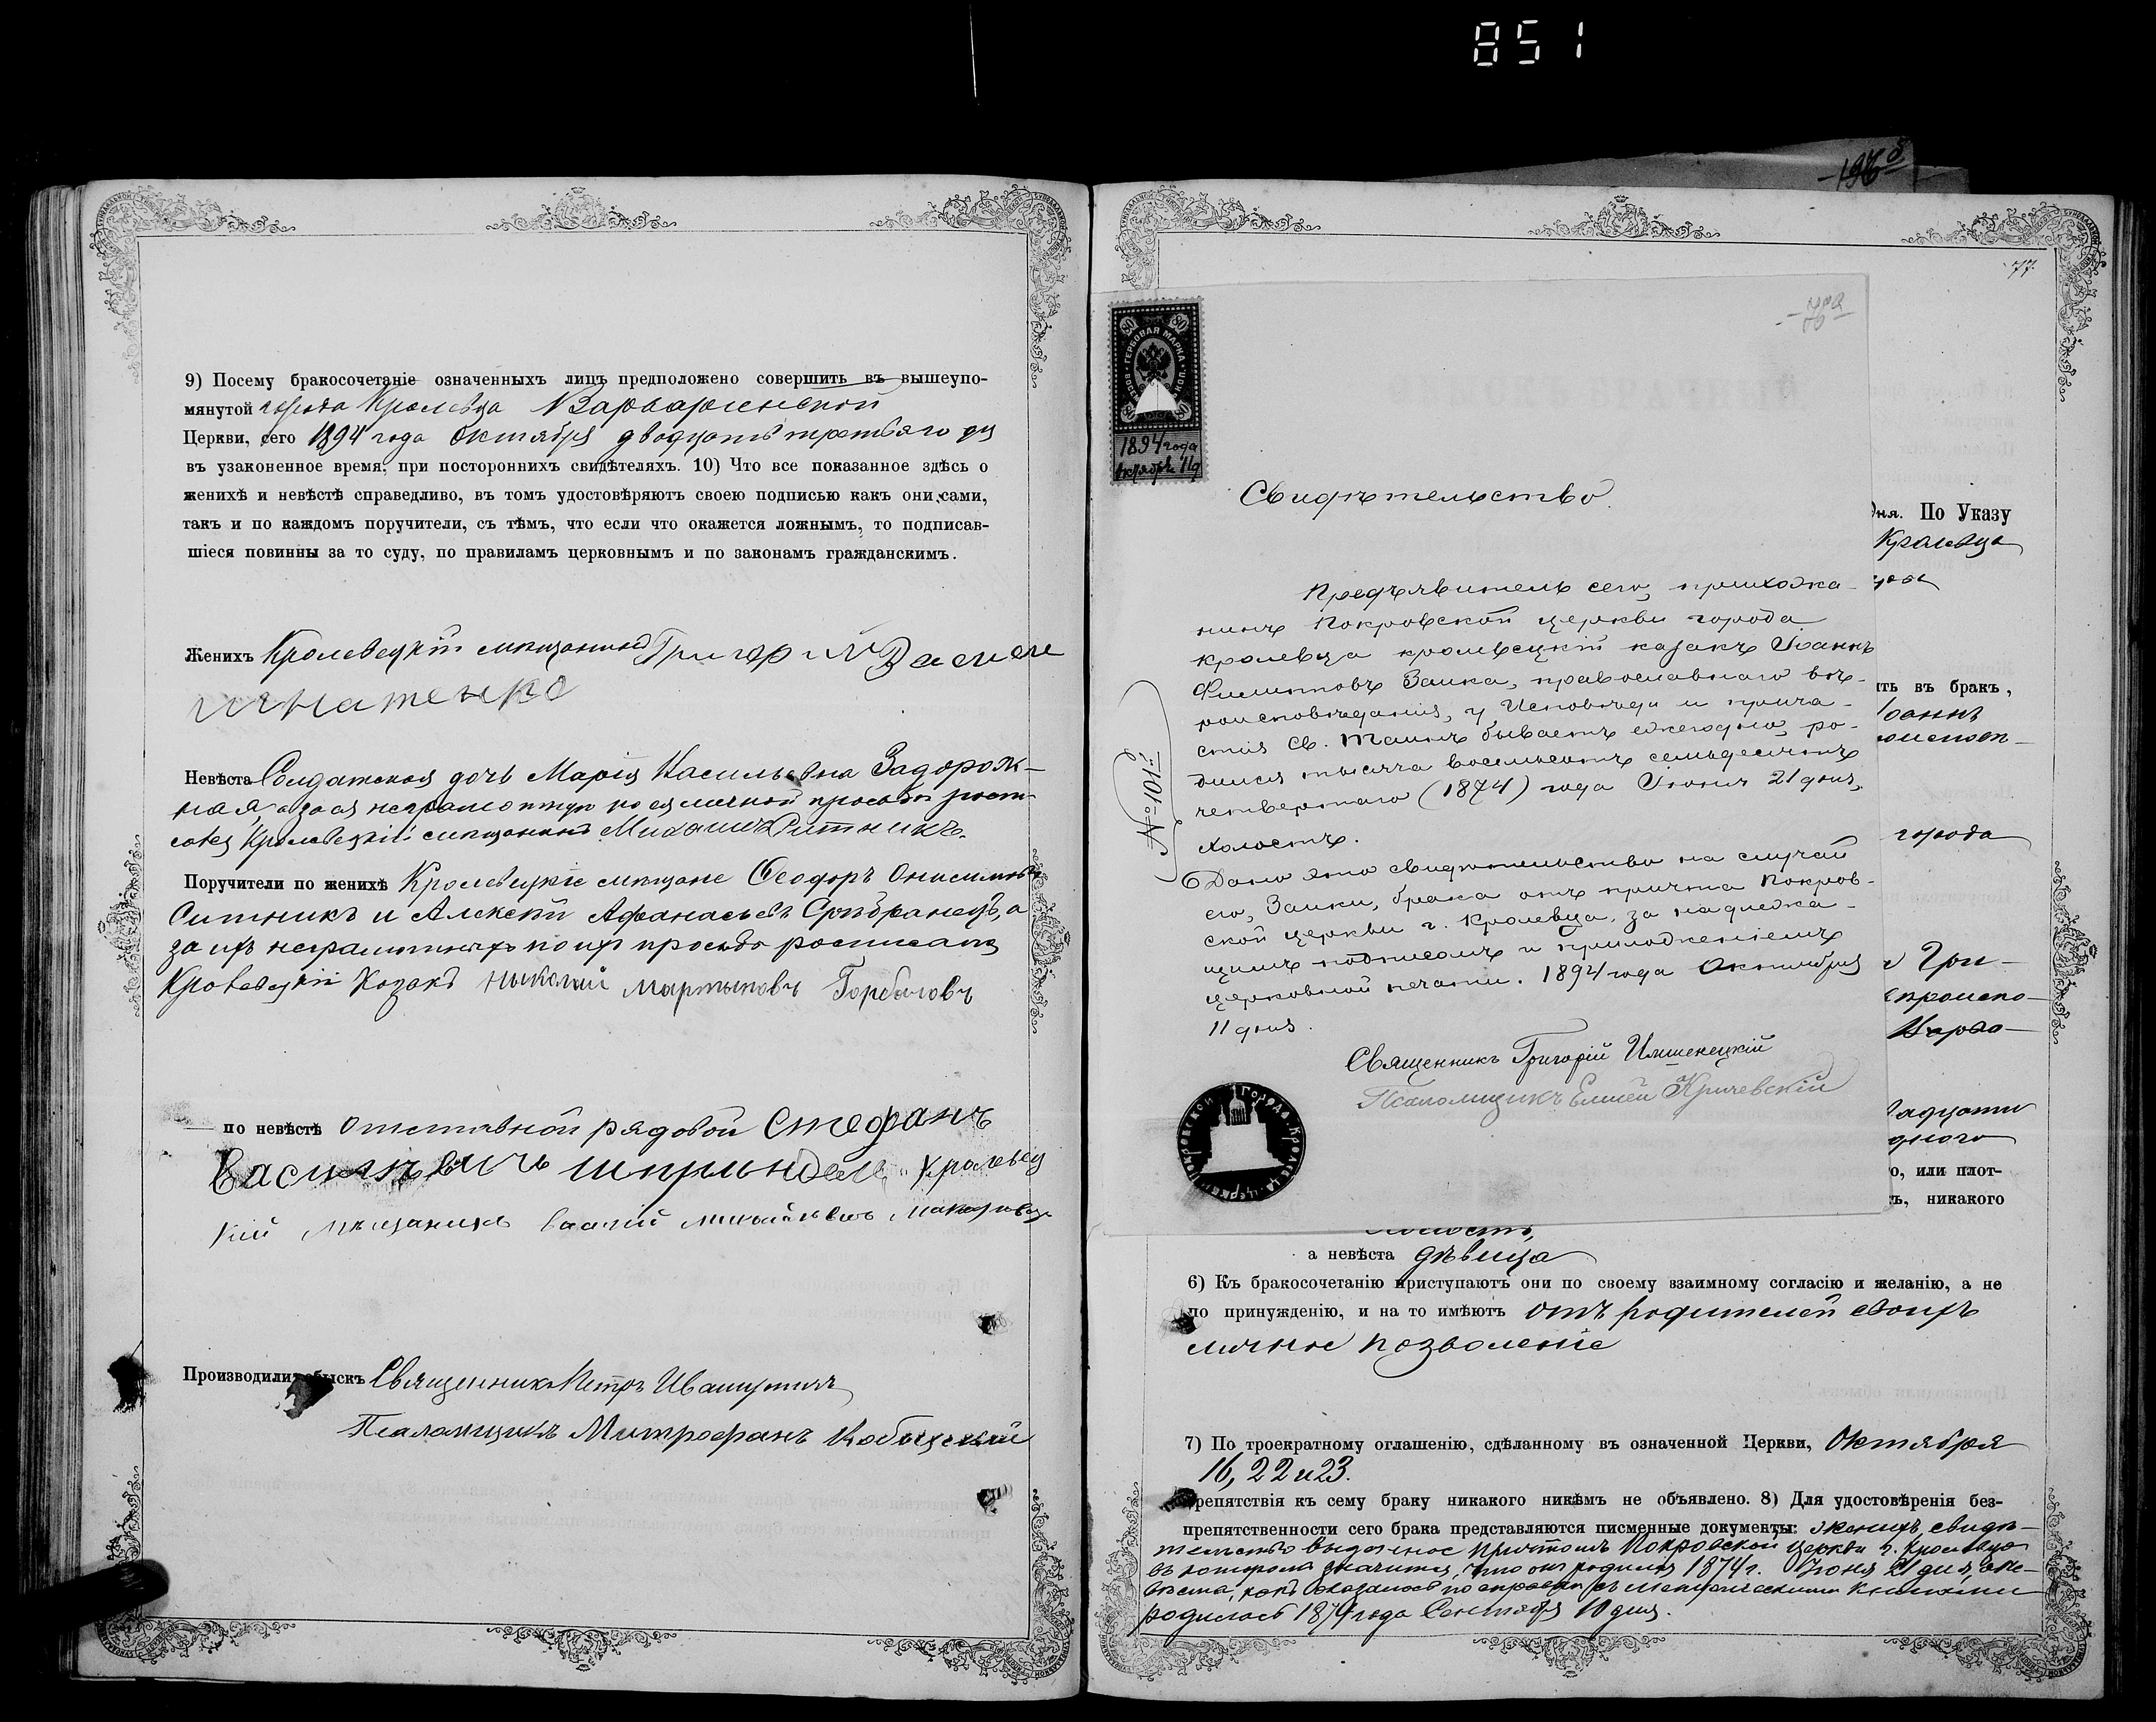 851
9) Посему бракосочетаніе означенныхъ лицъ предположено совершить въ вышеупо-
мянутой города Кролевца Варваринской
Церкви, сего 1894 года Октября двадцать третьяго дня
въ узаконенное время, при постороннихъ свидѣтеляхъ. 10) Что все показанное здѣсь о
женихѣ и невѣстѣ справедливо, въ томъ удостовѣряютъ своею подписью какъ они сами,
такъ и по каждомъ поручители, съ тѣмъ, что если что окажется ложнымъ, то подписав-
шіеся повинны за то суду, по правиламъ церковнымъ и по законамъ гражданскимъ.
Женихъ Кролевецкій мѣщанинъ Григорій
Невѣста Солдатская дочь Марія Васильевна Задорож-
ная, а за ея неграмотную по ея личной просьбѣ роспи-
Кролевецкій мѣщанинъ Михаилъ Ситникъ.
Поручители по женихѣ Кролевецкіе мѣщане Ѳеодоръ Онисимовъ
Ситникъ и Алексѣй Афанасьевъ Срибранецъ, а
за ихъ неграмотныхъ по ихъ просьбѣ росписался
Кролевецкій Козакъ Николай Мартыновъ Горбачовъ
по невѣстѣ отставной рядовой Стефанъ
Василъевичъ Кролевец
кій мѣщанинъ
Производили обыскъ Священникъ Петръ
Псаломщикъ Митрофанъ
-196 б
77.
80 80
ГЕРБОВАЯ МАРКА
80 80
1894 года
Октября 11 д
Свидѣтельство.
Предъявитель сего, прихожа-
нинъ Покровской церкви города
Кролевца кролевецкій казакъ Іоаннъ
Филиповъ Заика, православнаго вѣ-
роисповѣданія, у Исповѣди и прича-
стія Св. Таинъ бываетъ ежегодно, ро-
дился тысяча восемьсотъ семьдесятъ
четвертаго (1874) года Іюня 21 дня,
холостъ.
№ 101й
Дано это свидѣтельство на случай
его, Заики, брака отъ причта Покров-
ской церкви г. Кролевца, за надлежа-
щимъ подписомъ и приложеніемъ
церковной печати. 1894 года Октября
11 дня.
Священникъ Григорій Имшенецкій
Псаломщикъ Елисей Кричевскій
ПОКРОВСКОЙ ГОРОДА КРОЛЕВЦА ЦЕРКВИ
дня. По Указу
Кролевца
ить въ бракъ,
Іоаннъ
города
Гри-
о, или плот-
ъ, никакого
а невѣста дѣвица
6) Къ бракосочетанію приступаютъ они по своему взаимному согласію и желанію, а не
по принужденію, и на то имѣютъ отъ родителей своихъ
личное позволеніе
7) По троекратному оглашенію, сдѣланному въ означенной Церкви, Октября
16, 22 и 23.
препятствія къ сему браку никакого никѣмъ не объявлено. 8) Для удостовѣренія без-
препятственности сего брака представляются писменные документы: женихъ, свидѣ-
тельство выданное причтомъ Покровской церкви г. Кролевца
въ которомъ значится, что онъ родился 1874 г. Іюня 21 дня, а не-
вѣста, какъ оказалось по справкѣ съ метрическими книгами
родилась 1874 года Сентября 10 дня.